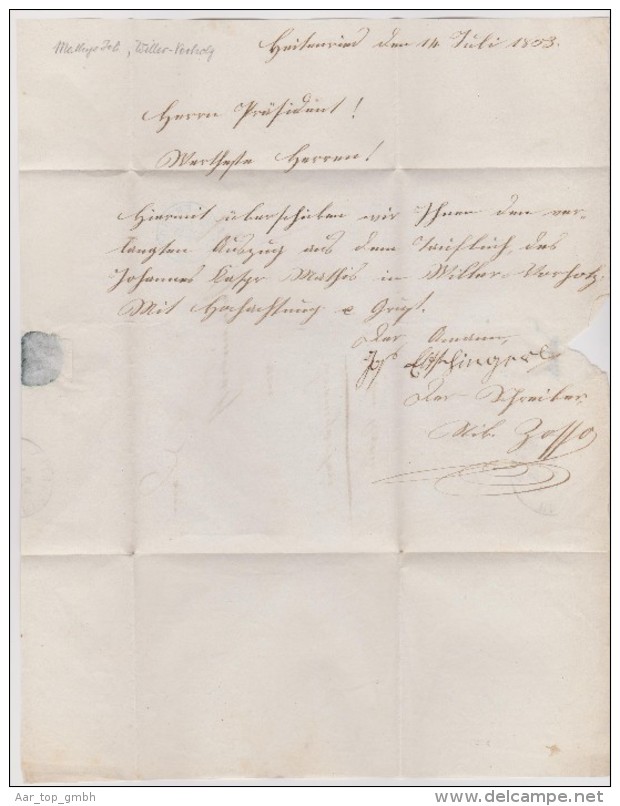 Matheys Joh , Willer-Vorholz
Heitenried den 14 Juli 1853.
Herrn Präsident!
Wertheste Herren!
Hiermit überschicken wir Ihnen den ver-
langten Auszug aus dem Taufbuch, des
Johannes Kaspr Mathis in Willer-Vorholz.
Mit Hochachtung & Gruß.
Der Amann,
Jos
Der Schreiber,
Zosso
Aar_top_gmbh
www.delcampe.net